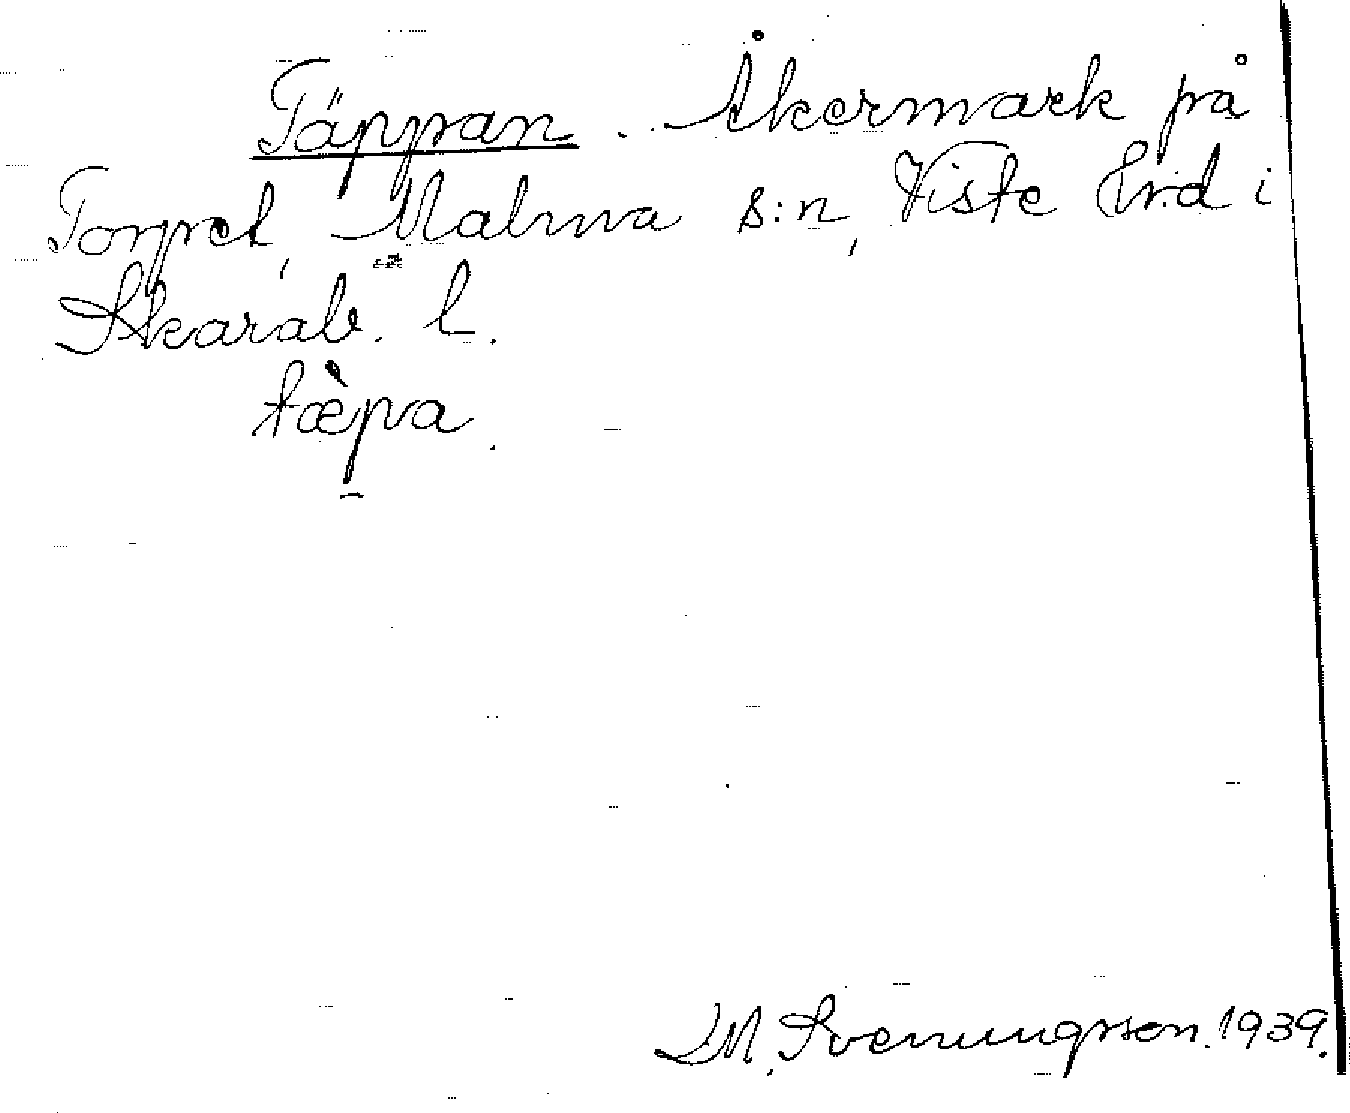 Täppan. Åkermark på
Torpet, Malma s:n, Viste hrd i
Skarab. l.
tæ̀pa.
M. Svenungsson. 1939.